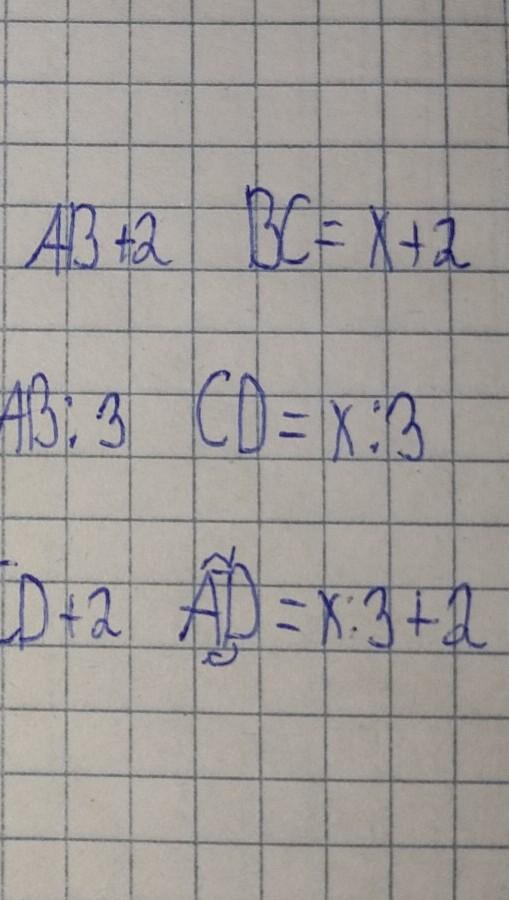 AB+2 BC= x+2
AB:3 CD=x:3
CD+2 AD=x:3+2